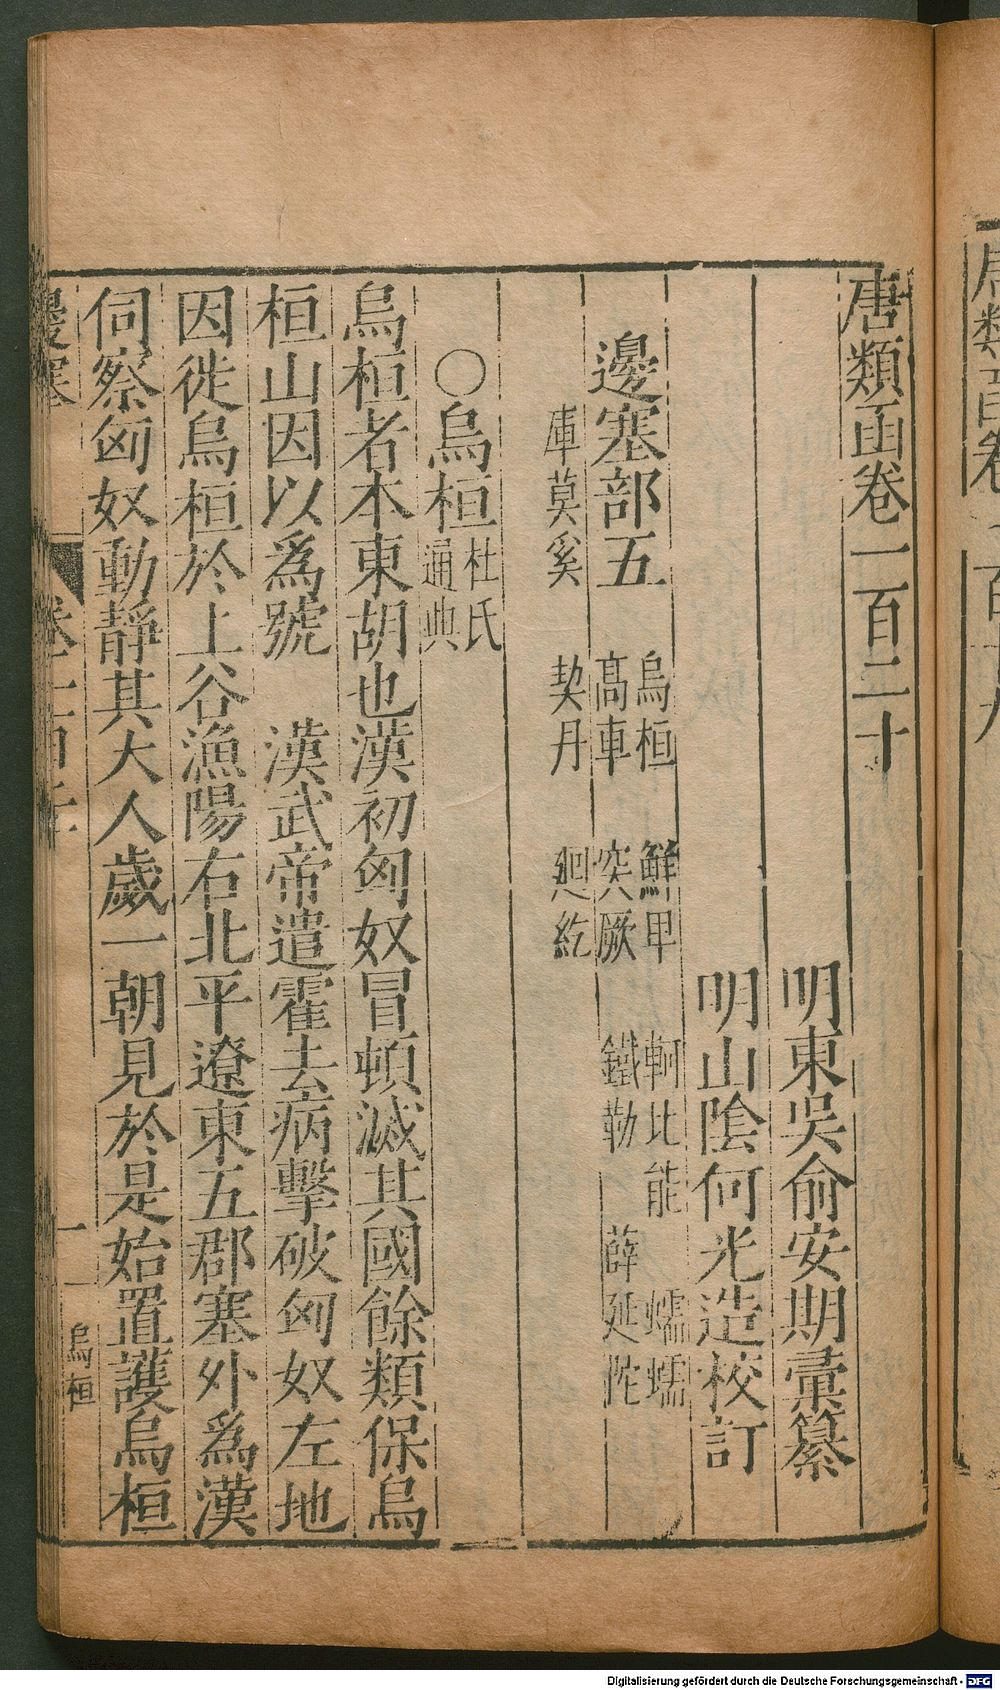 唐類函卷一百二十
明東吳俞安期彙纂
明山陰何光造校訂
邊塞部五
烏桓 鮮卑 軻比能 蠕蠕
高車 突厥 鐵勒 薛延陀
庫莫奚 契丹 廻紇
〇烏桓杜氏通典
烏桓者本東胡也漢初匈奴冒頓滅其國餘類保烏
桓山因以爲號 漢武帝遣霍去病擊破匈奴左地
因徙烏桓於上谷漁陽右北平遼東五郡塞外爲漢
伺察匈奴動靜其大人歲一朝見於是始置護烏桓
邊塞
烏桓
Digitalisierung gefördert durch die Deutsche Forschungsgemeinschaft - DFG